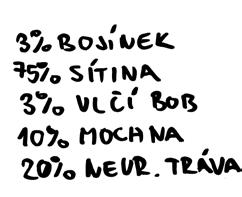 3% BOJÍNEK
75% SÍTINA
3% VLČÍ BOB
10% MOCHNA
20% NEUR. TRÁVA